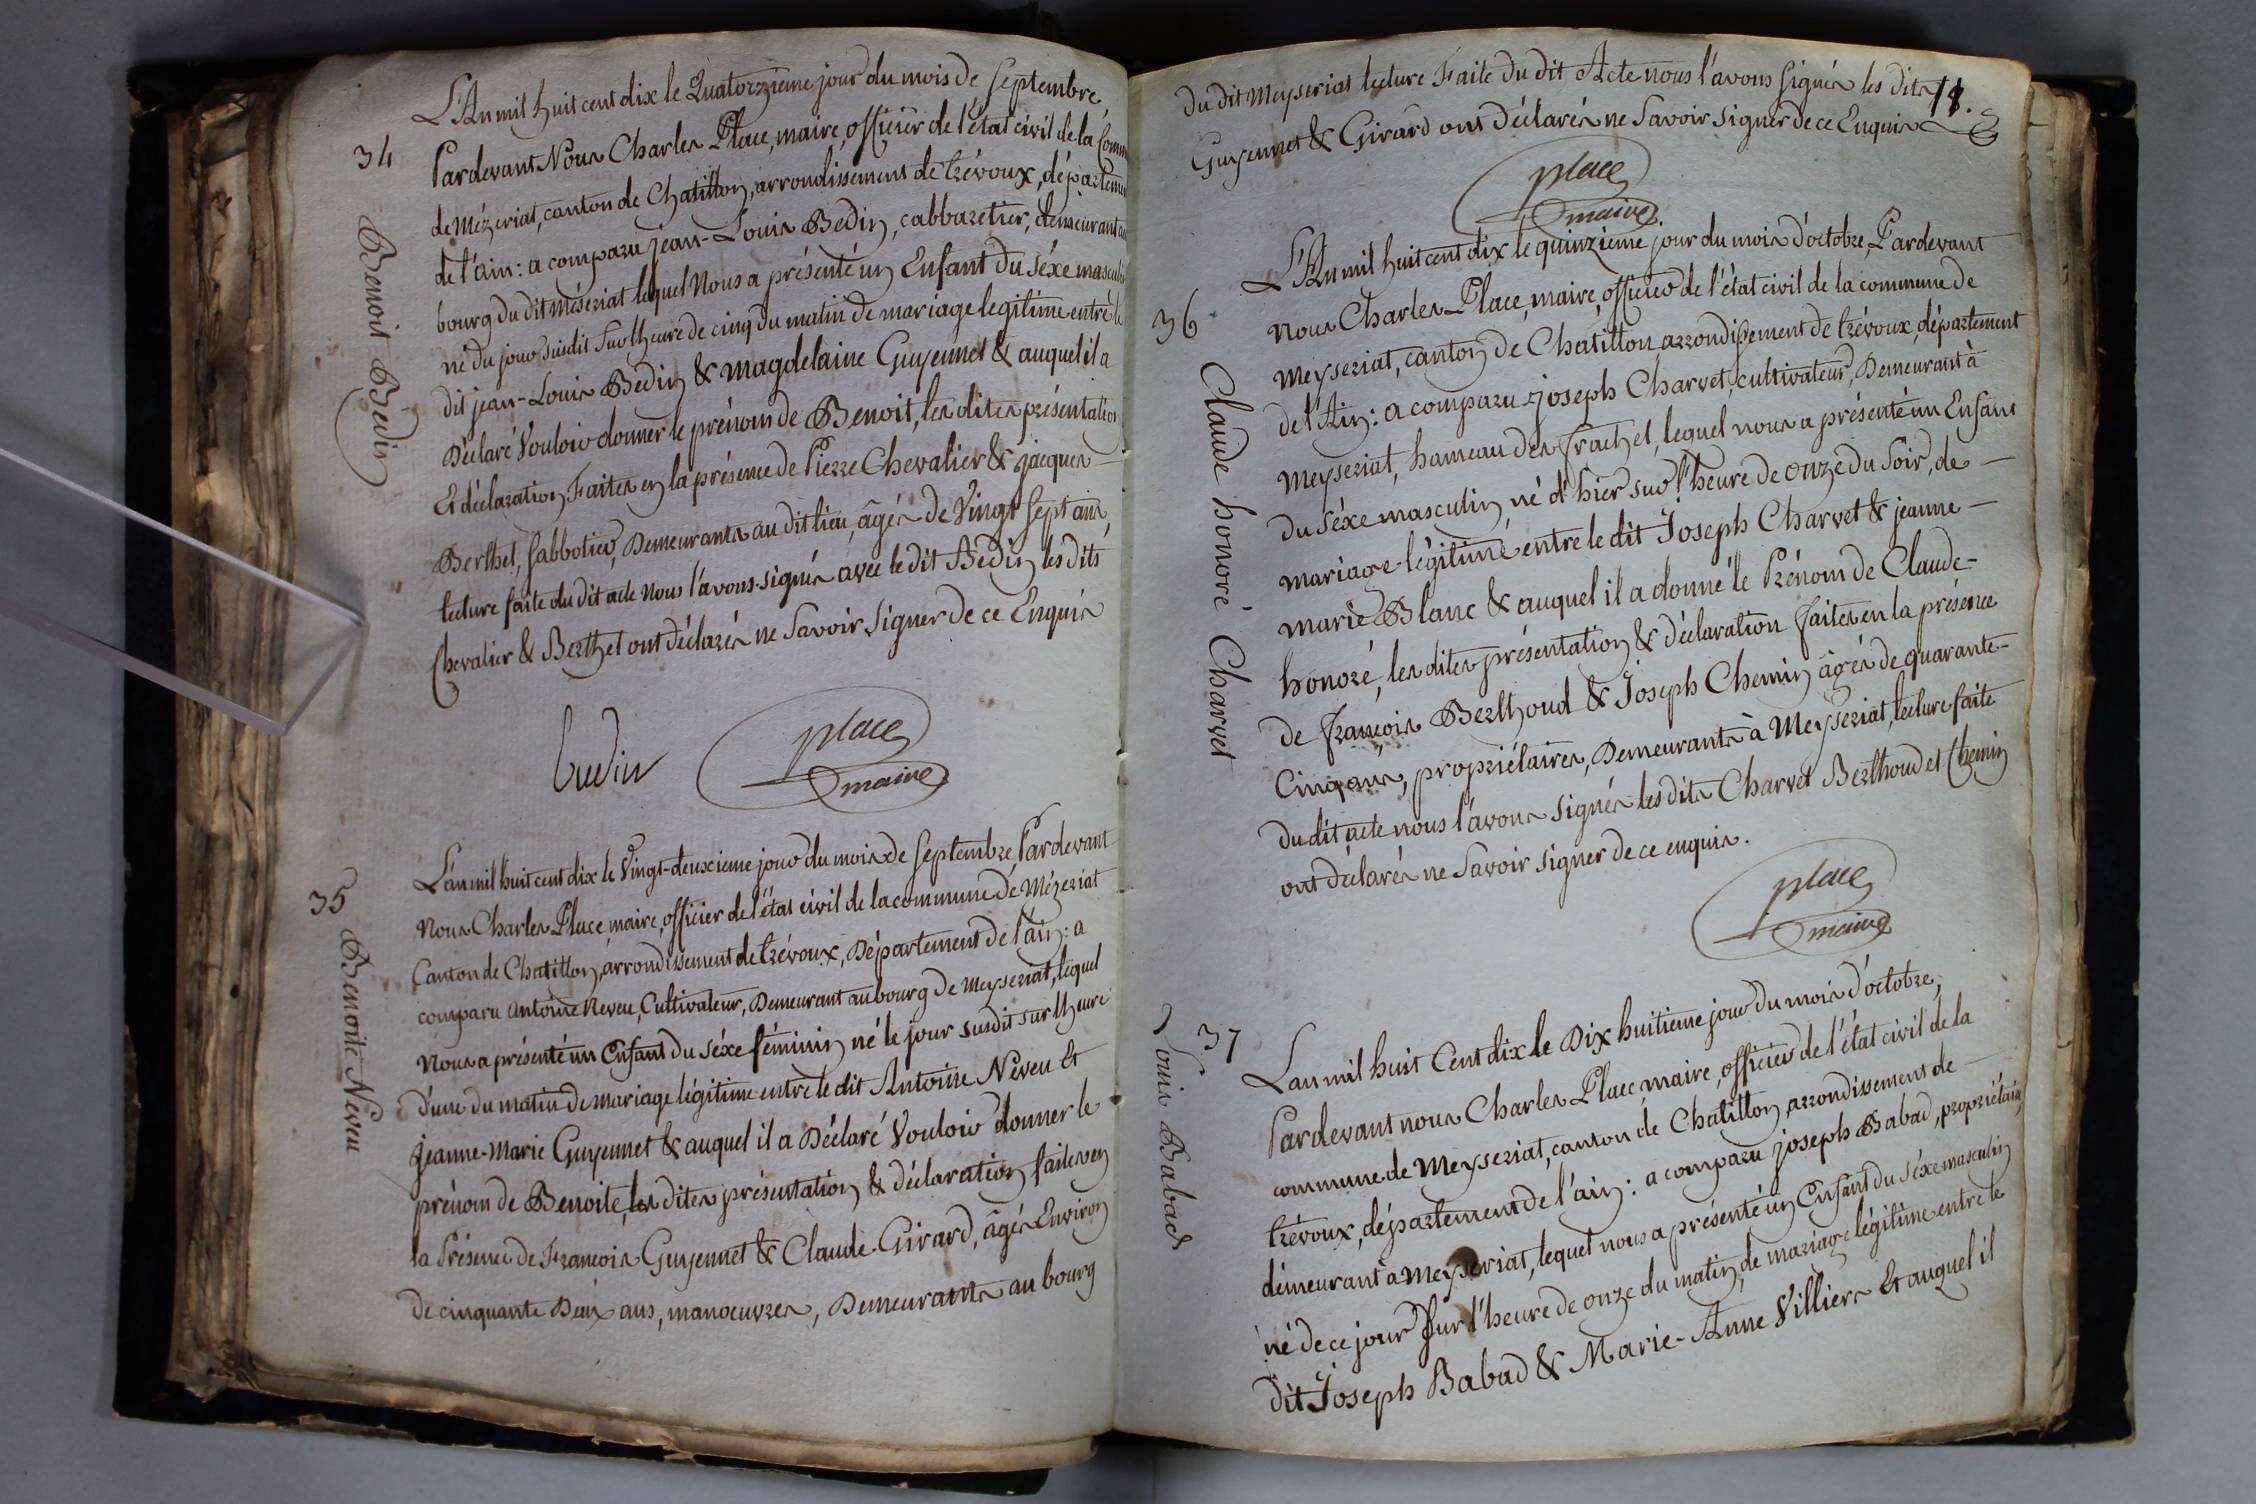 34
Benoit Bédin
L'An mil huit cent dix le Quatorzieme jour du mois de Septembre,
Pardevant Nous Charles Place, maire, officier de l'état civil de la Comm
de Mézeriat, canton de Chatillon, arrondissement de trévoux, départemen
de l'ain: a comparu jean-Louis Bedin, cabbaretier, demeurant au
bourg du dit Méseriat lequel Nous a présenté un Enfant du séxe masculin
né du jour susdit Sur l'heure de cinq du matin de mariage legitime entre le
dit jean-Louis Bedin & magdelaine Guyennet & auquel il a
Déclaré Vouloir donner le prénom de Benoit, les dites présentation
Et déclaration Faites en la présence de Pierre Chevalier & jacques
Berthet, Sabbotier, Demeurants au dit lieu, âgés de Vingt Sept ans,
lecture faite du dit acte Nous l'avons signés avec le dit Bédin les dits
Chevalier & Berthet ont déclarés ne Savoir Signer de ce Enquis
budin
place
maire
35
Benoite Néveu
L'an mil huit cent dix le Vingt-deuxieme jour du mois de Septembre, Pardevant
Nous Charles Place, maire, officier de l'état civil de la commune de Mézeriat
Canton de Chatillon, arrondissement de trévoux, Département de l'ain: a
comparu Antoine Neveu, Cultivateur, Demeurant au bourg de Meyseriat, lequel
Nous a présenté un Enfant du séxe féminin né le jour susdit sur l'heure
d'une du matin de mariage légitime entre le dit Antoine Néveu Et
jeanne-Marie Guyennet & auquel il a Déclaré Vouloir donner le
prénom de Benoite, les dites présentation & déclaration faites en
la Présence de François Guyennet & Claude Girard, âgés Environ
de cinquante Deux ans, manoeuvres, Demeurants au bourg
18.
du dit Meyseriat lecture Faite du dit Acte nous l'avons Signés les dits
Guyennet & Girard ont déclarés ne Savoir signer de ce Enquis
place
maire
36
Claude honoré Charvet
L'An mil huit cent dix le quinzieme jour du mois d'octobre, Pardevant
Nous Charles Place, maire, officier de l'état civil de la commune de
Meyseriat, canton de Chatillon arrondissement de trévoux, département
de l'Ain: a comparu joseph Charvet, cultivateur, Demeurant à
Meyseriat, hameau des frachet, lequel nous a présenté un Enfant
du séxe masculin, né d'hier sur l'heure de onze du Soir, de
mariage légitime entre le dit Joseph Charvet & jeanne
marie Blanc & auquel il a donné le Prénom de Claude-
honoré, les dites présentation & déclaration faites en la présence
de François Berthoud & Joseph Chemin âgés de quarante-
Cinq ans, propriétaires, Demeurants à Meyseriat, lecture faite
du dit acte nous l'avons signés les dits Charvet Berthoud et Chemin
ont déclarés ne Savoir signer de ce enquis.
place
maire
37
Louis Babad
L'an mil huit Cent dix le Dix huitieme jour du mois d'octobre,
Pardevant nous Charles Place, maire, officier de l'état civil de la
commune de Meyseriat, canton de Chatillon, arrondissement de
trévoux, département de l'ain: a comparu joseph Babad, propriétaire,
demeurant à Meyseriat, lequel nous a présenté un Enfant du séxe masculin
né de ce jour Sur l'heure de onze du matin, de mariage légitime entre le
dit Joseph Babad & Marie-Anne Villiers Et auquel il